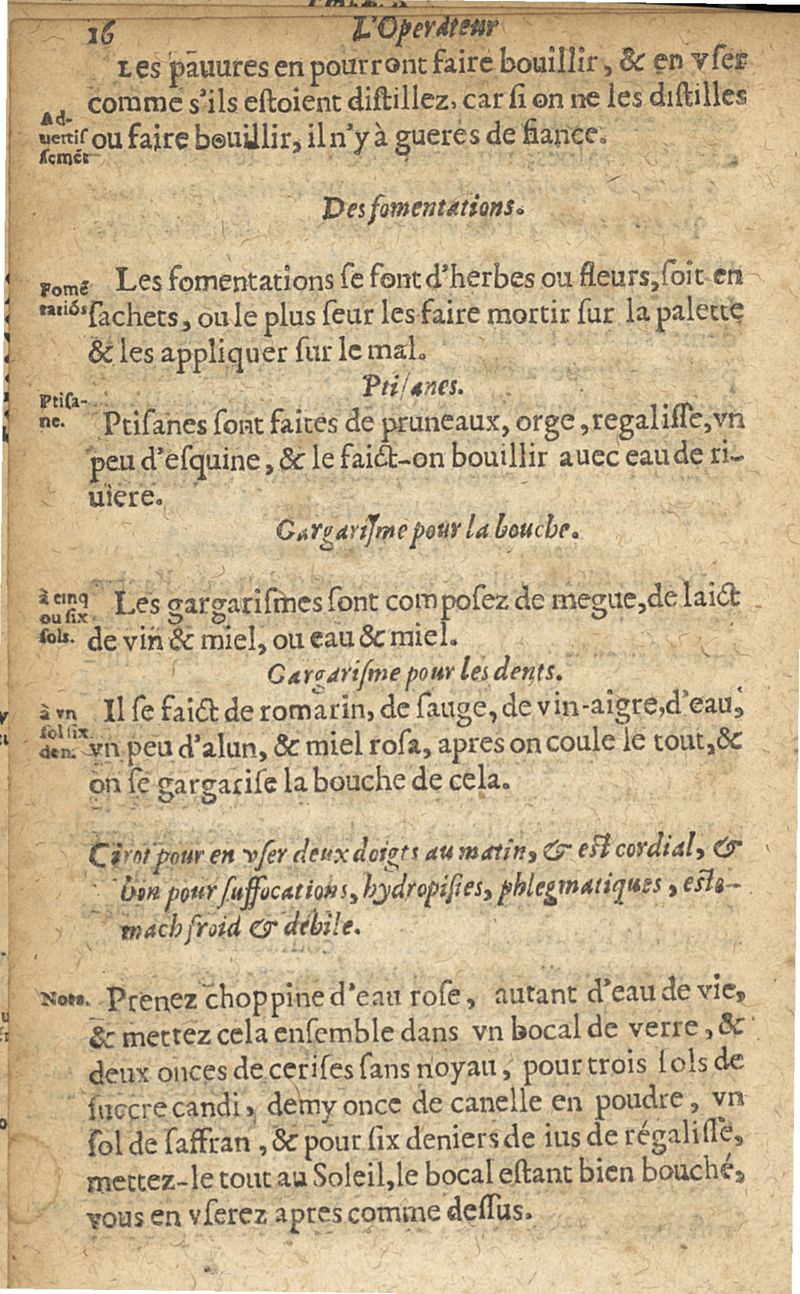 16 L'Operateur
Les pāuures en pourront faire bouillir, & en vſer
comme s'ils eſtoient diſtillez, car ſi on ne les diſtilles
Ad-
uertiſ
ſemēt
ou faire bouillir, il n'y à gueres de fiance.
Des fomentations.
Fomē
tatiōs
Les fomentations ſe font d'herbes ou fleurs, ſoit en
ſachets, ou le plus ſeur les faire mortir ſur la palette
& les appliquer ſur le mal.
Ptiſanes.
Ptiſa-
ne.
Ptiſanes ſont faites de pruneaux, orge, regaliſſe, vn
peu d'eſquine, & le faict-on bouillir auec eau de ri-
uiere.
Gargariſme pour la bouche.
à cinq
ou ſix
ſols.
Les gargariſmes ſont compoſez de megue, de laict
de vin & miel, ou eau & miel.
Gargariſme pour les dents.
à vn
ſol ſix
den.
Il ſe faict de romarin, de ſauge, de vin-aigre, d'eau,
vn peu d'alun, & miel roſa, apres on coule le tout, &
on ſe gargariſe la bouche de cela.
Cirot pour en vſer deux doigts au matin, & eſt cordial, &
bon pour ſuffocations, hydropiſies, phlegmatiques, eſto-
mach froid & debile.
Nota.
Prenez choppine d'eau roſe, autant d'eau de vie,
& mettez cela enſemble dans vn bocal de verre, &
deux onces de ceriſes ſans noyau, pour trois ſols de
ſuccre candi, demy once de canelle en poudre, vn
ſol de ſaffran, & pour ſix deniers de ius de régaliſſe,
mettez-le tout au Soleil, le bocal eſtant bien bouché,
vous en vſerez apres comme deſſus.